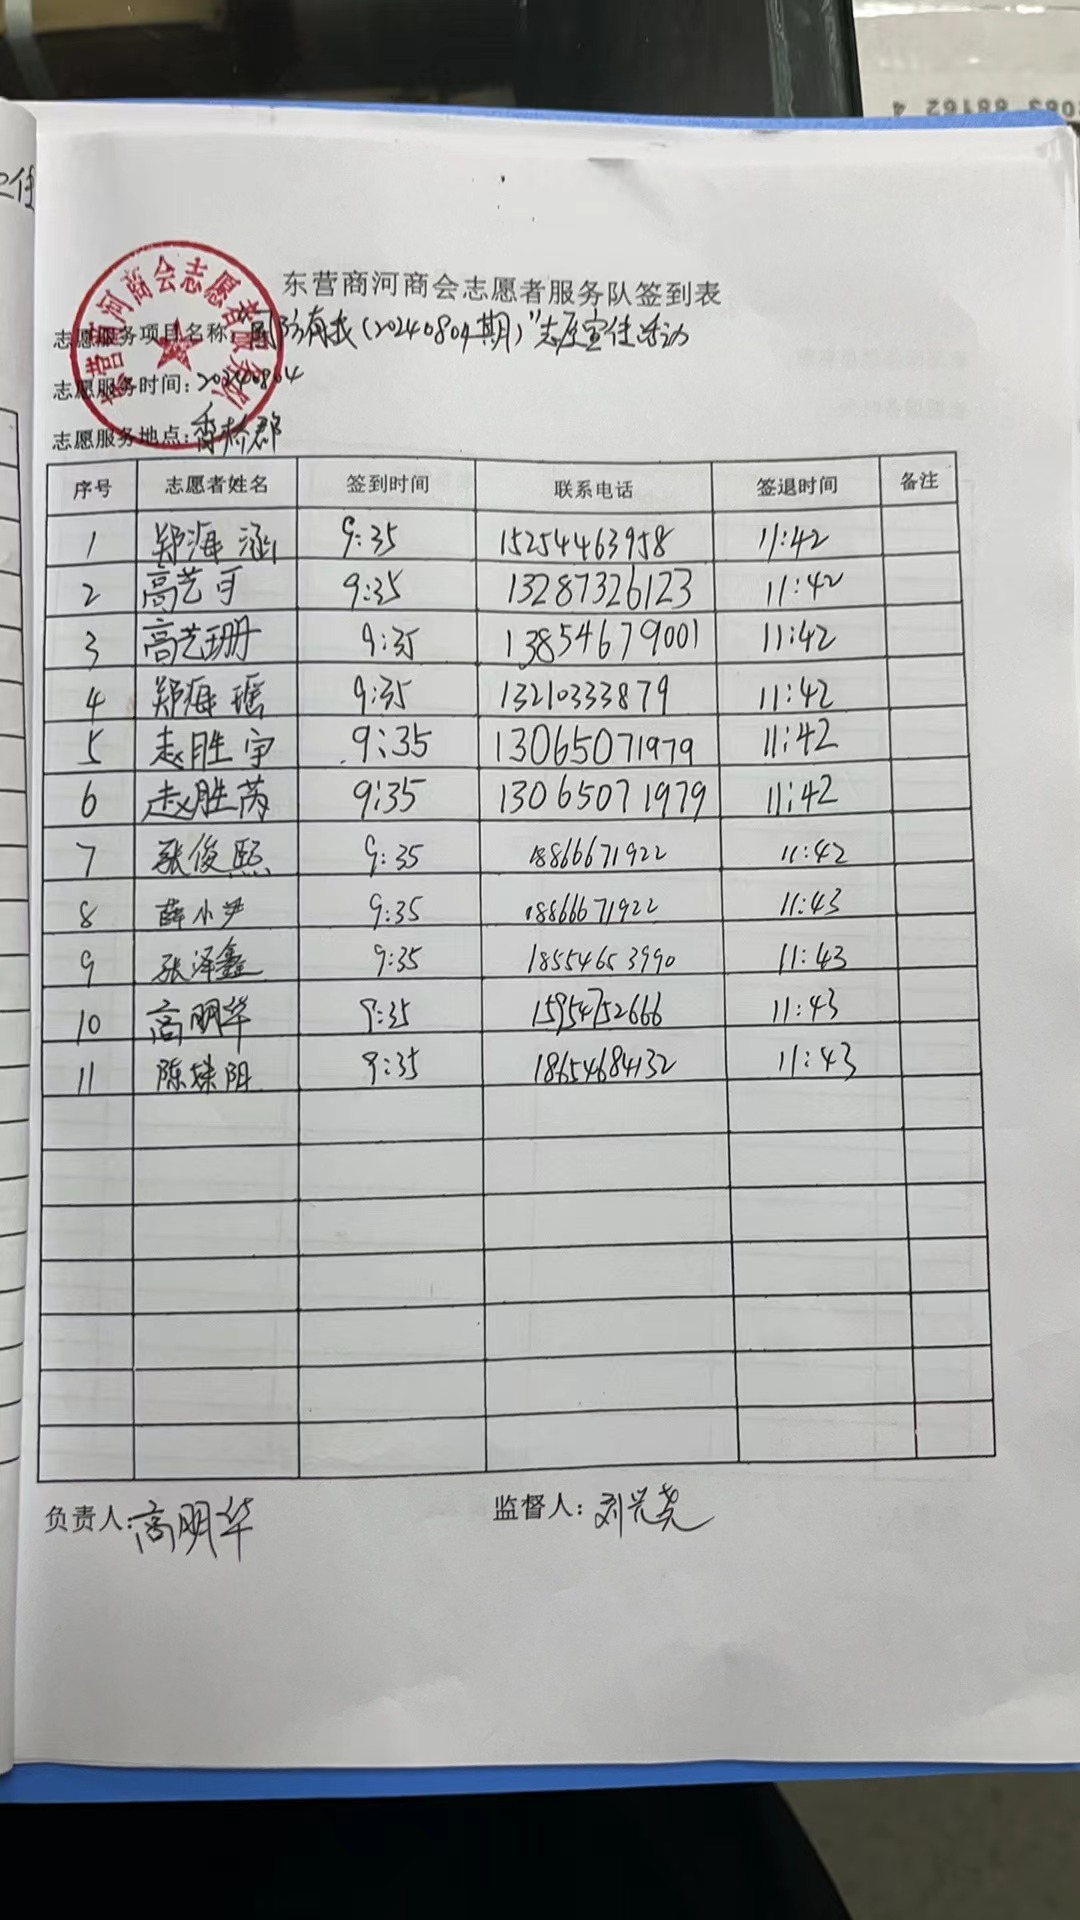 083 88162 4
东营商河商会志愿者服务队
东营商河商会志愿者服务队签到表
志愿服务项目名称: 有我(20240804期)"志愿宣传活动
志愿服务时间: 20240804
志愿服务地点: 香桥郡
序号 志愿者姓名 签到时间 联系电话 签退时间 备注
1 郑海涵 9:35 15254463958 11:42
2 高艺可 9:35 13287326123 11:42
3 高艺珊 9:35 13854679001 11:42
4 郑海瑶 9:35 13210333879 11:42
5 赵胜宇 9:35 13065071979 11:42
6 赵胜芮 9:35 13065071979 11:42
7 张俊熙 9:35 18866671922 11:42
8 薛小尹 9:35 18866671922 11:43
9 张泽鑫 9:35 18554653990 11:43
10 高明华 9:35 15954752666 11:43
11 陈姝阳 9:35 18654684132 11:43
负责人: 高明华 监督人: 刘兴尧